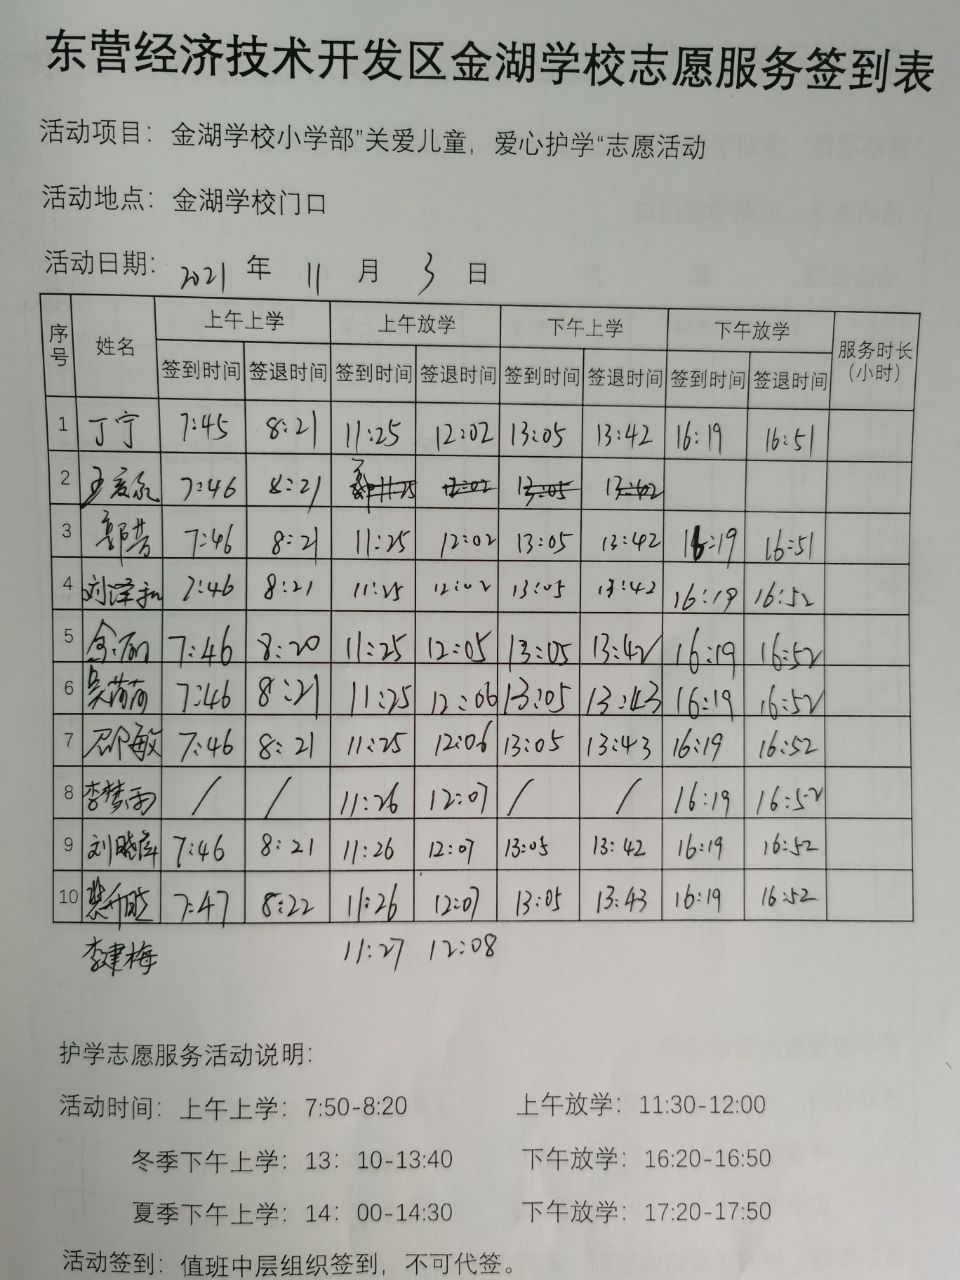 东营经济技术开发区金湖学校志愿服务签到表
活动项目：金湖学校小学部"关爱儿童，爱心护学“志愿活动
活动地点：金湖学校门口
活动日期：2021 年 11 月 3 日
序号 姓名 上午上学 上午放学 下午上学 下午放学 服务时长（小时）
签到时间 签退时间 签到时间 签退时间 签到时间 签退时间 签到时间 签退时间
1 丁宁 7:45 8:21 11:25 12:02 13:05 13:42 16:19 16:51
2 7:46 8:21 11:25 12:02 13:05 13:42
3 郭芸 7:46 8:21 11:25 12:02 13:05 13:42 16:19 16:51
4 刘泽和 7:46 8:21 11:25 12:02 13:05 13:42 16:19 16:52
5 7:46 8:20 11:25 12:05 13:05 13:42 16:19 16:52
6 吴荷荷 7:46 8:21 11:25 12:06 13:05 13:43 16:19 16:52
7 邵敏 7:46 8:21 11:25 12:06 13:05 13:43 16:19 16:52
8 李梦雨 / / 11:26 12:07 / / 16:19 16:52
9 刘晓萍 7:46 8:21 11:26 12:07 13:05 13:42 16:19 16:52
10 7:47 8:22 11:26 12:07 13:05 13:43 16:19 16:52
李建梅 11:27 12:08
护学志愿服务活动说明：
活动时间：上午上学：7:50-8:20 上午放学：11:30-12:00
冬季下午上学：13：10-13:40 下午放学：16:20-16:50
夏季下午上学：14：00-14:30 下午放学：17:20-17:50
活动签到：值班中层组织签到，不可代签。